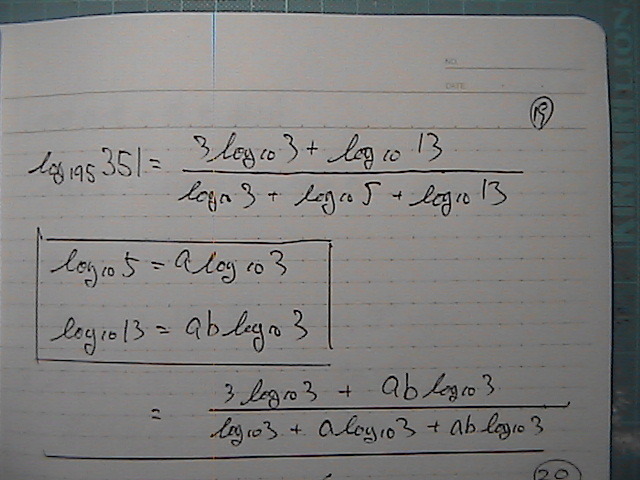 NO.
DATE
⑲
log₁₉₅ 351 = (3 log₁₀ 3 + log₁₀ 13) / (log₁₀ 3 + log₁₀ 5 + log₁₀ 13)
log₁₀ 5 = a log₁₀ 3
log₁₀ 13 = ab log₁₀ 3
= (3 log₁₀ 3 + ab log₁₀ 3) / (log₁₀ 3 + a log₁₀ 3 + ab log₁₀ 3)
⑳